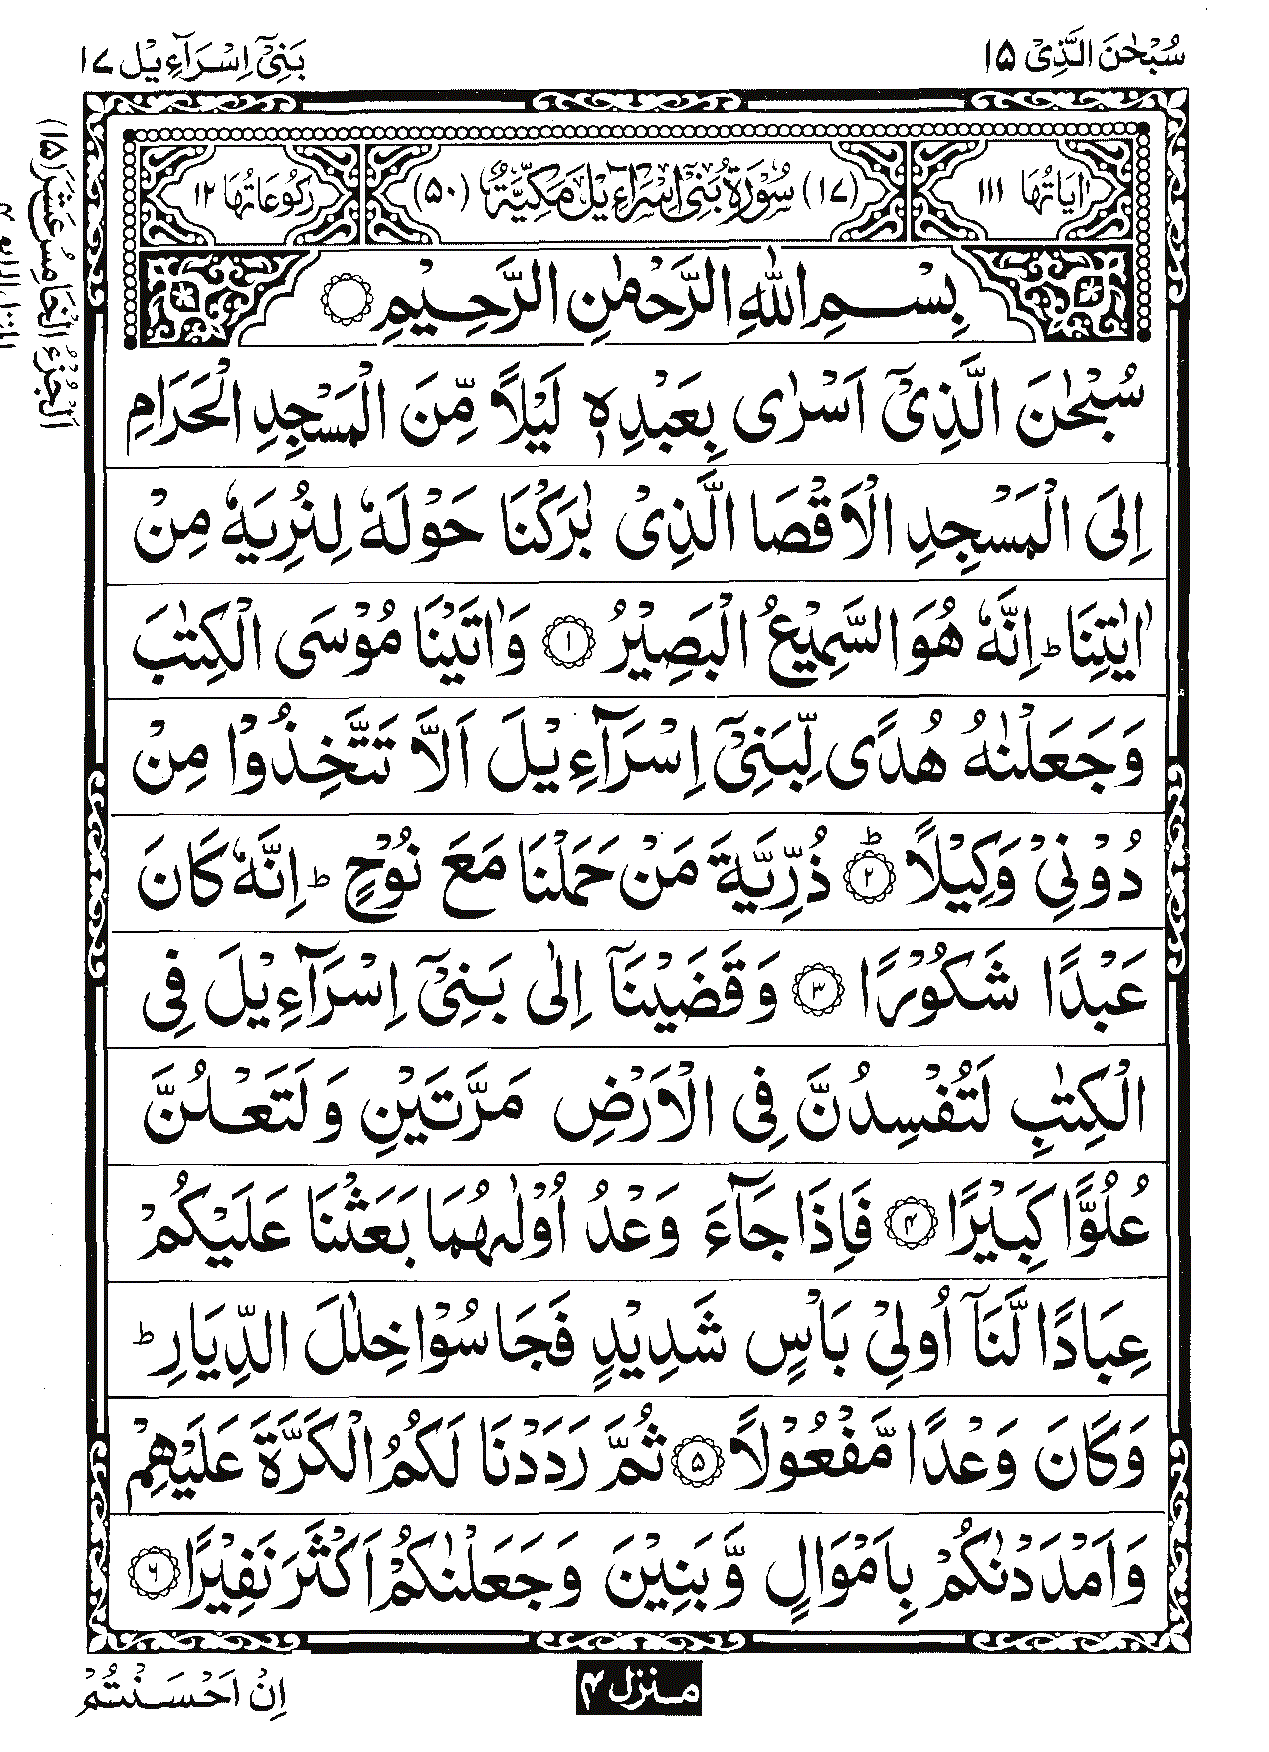 سُبْحٰنَ الَّذِیْ ۱۵
بَنِیْۤ اِسْرَآءِیْل ۱۷
اٰیَاتُهَا ۱۱۱
(۱۷) سُوْرَةُ بَنِیْۤ اِسْرَآءِیْلَ مَكِّیَّةٌ (۵۰)
رُكُوْعَاتُهَا ۱۲
بِسْمِ اللّٰهِ الرَّحْمٰنِ الرَّحِیْمِ
سُبْحٰنَ الَّذِیْۤ اَسْرٰی بِعَبْدِهٖ لَیْلًا مِّنَ الْمَسْجِدِ الْحَرَامِ
اِلَی الْمَسْجِدِ الْاَقْصَا الَّذِیْ بٰرَكْنَا حَوْلَهٗ لِنُرِیَهٗ مِنْ
اٰیٰتِنَا ؕ اِنَّهٗ هُوَ السَّمِیْعُ الْبَصِیْرُ ۱ وَاٰتَیْنَا مُوْسَی الْكِتٰبَ
وَجَعَلْنٰهُ هُدًی لِّبَنِیْۤ اِسْرَآءِیْلَ اَلَّا تَتَّخِذُوْا مِنْ
دُوْنِیْ وَكِیْلًا ؕ ۲ ذُرِّیَّةَ مَنْ حَمَلْنَا مَعَ نُوْحٍ ؕ اِنَّهٗ كَانَ
عَبْدًا شَكُوْرًا ۳ وَقَضَیْنَاۤ اِلٰی بَنِیْۤ اِسْرَآءِیْلَ فِی
الْكِتٰبِ لَتُفْسِدُنَّ فِی الْاَرْضِ مَرَّتَیْنِ وَلَتَعْلُنَّ
عُلُوًّا كَبِیْرًا ۴ فَاِذَا جَآءَ وَعْدُ اُوْلٰىهُمَا بَعَثْنَا عَلَیْكُمْ
عِبَادًا لَّنَاۤ اُولِیْ بَاْسٍ شَدِیْدٍ فَجَاسُوْا خِلٰلَ الدِّیَارِ ؕ
وَكَانَ وَعْدًا مَّفْعُوْلًا ۵ ثُمَّ رَدَدْنَا لَكُمُ الْكَرَّةَ عَلَیْهِمْ
وَاَمْدَدْنٰكُمْ بِاَمْوَالٍ وَّبَنِیْنَ وَجَعَلْنٰكُمْ اَكْثَرَ نَفِیْرًا ۶
مـنزل ۴
اِنْ اَحْسَـنْتُمْ
اَلْجُزْءُ الْخَامِسُ عَشَرَ (۱۵)